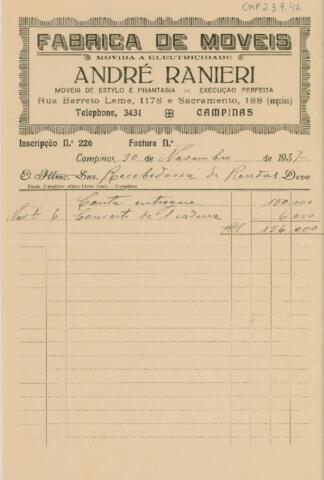 CMP2.3.9.47
FABRICA DE MOVEIS
MOVIDA A ELECTRICIDADE
ANDRÉ RANIERI
MOVEIS DE ESTYLO E PHANTASIA × EXECUÇÃO PERFEITA
Rua Barreto Leme, 1178 e Sacramento, 188 (esquina)
Telephone, 3431 CAMPINAS
Inscripção N.º 226 Factura N.º
Campinas, 30 de Novembro de 1937
O Illmo. Snr. Recebedoria de Rendas Deve
Conta entregue 150,000
Novb 6 Concerto de 1 cadeira 6,000
Rs 156,000